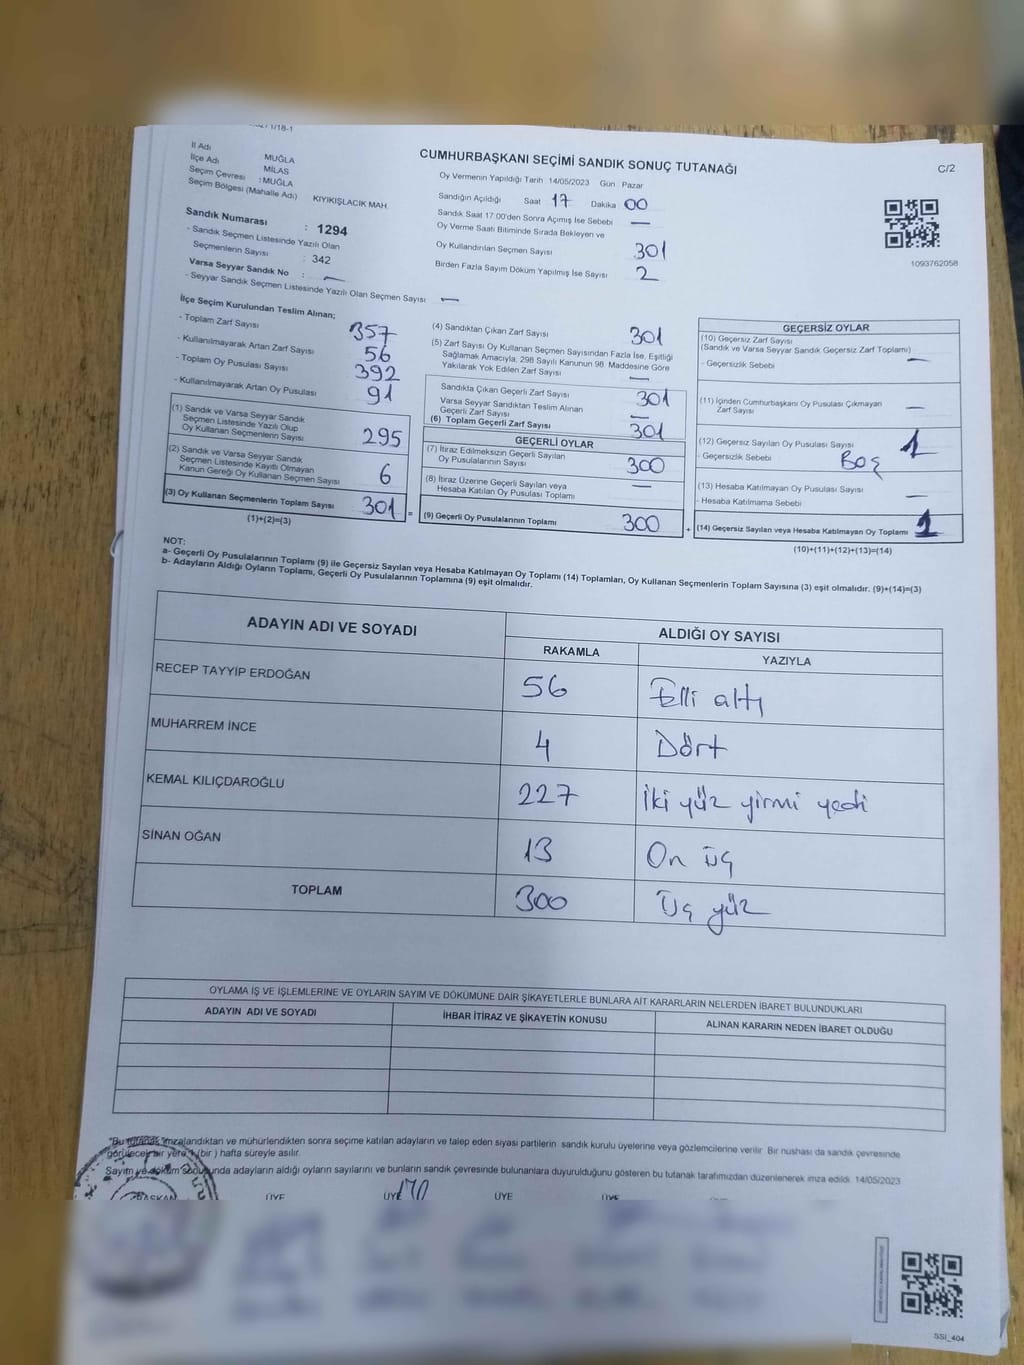 İl Adı MUĞLA
İlçe Adı MİLAS
Seçim Çevresi : MUĞLA
Seçim Bölgesi (Mahalle Adı) KIYIKIŞLACIK MAH.
Sandık Numarası : 1294
- Sandık Seçmen Listesinde Yazılı Olan
Seçmenlerin Sayısı : 342
Varsa Seyyar Sandık No : —
- Seyyar Sandık Seçmen Listesinde Yazılı Olan Seçmen Sayısı —
CUMHURBAŞKANI SEÇİMİ SANDIK SONUÇ TUTANAĞI
C/2
Oy Vermenin Yapıldığı Tarih 14/05/2023 Gün : Pazar
Sandığın Açıldığı Saat 17 Dakika 00
Sandık Saat 17.00'den Sonra Açımış İse Sebebi —
Oy Verme Saati Bitiminde Sırada Bekleyen ve
Oy Kullandırılan Seçmen Sayısı 301
Birden Fazla Sayım Döküm Yapılmış İse Sayısı 2
1093762058
İlçe Seçim Kurulundan Teslim Alınan;
- Toplam Zarf Sayısı 357
- Kullanılmayarak Artan Zarf Sayısı 56
- Toplam Oy Pusulası Sayısı 392
- Kullanılmayarak Artan Oy Pusulası 91
(1) Sandık ve Varsa Seyyar Sandık
Seçmen Listesinde Yazılı Olup
Oy Kullanan Seçmenlerin Sayısı 295
(2) Sandık ve Varsa Seyyar Sandık
Seçmen Listesinde Kayıtlı Olmayan
Kanun Gereği Oy Kullanan Seçmen Sayısı 6
(3) Oy Kullanan Seçmenlerin Toplam Sayısı 301 =
(1)+(2)=(3)
(4) Sandıktan Çıkan Zarf Sayısı 301
(5) Zarf Sayısı Oy Kullanan Seçmen Sayısından Fazla İse, Eşitliği
Sağlamak Amacıyla, 298 Sayılı Kanunun 98. Maddesine Göre
Yakılarak Yok Edilen Zarf Sayısı —
Sandıkta Çıkan Geçerli Zarf Sayısı 301
Varsa Seyyar Sandıktan Teslim Alınan
Geçerli Zarf Sayısı —
(6) Toplam Geçerli Zarf Sayısı 301
GEÇERLİ OYLAR
(7) İtiraz Edilmeksizin Geçerli Sayılan
Oy Pusulalarının Sayısı 300
(8) İtiraz Üzerine Geçerli Sayılan veya
Hesaba Katılan Oy Pusulası Toplamı —
(9) Geçerli Oy Pusulalarının Toplamı 300 +
GEÇERSİZ OYLAR
(10) Geçersiz Zarf Sayısı
(Sandık ve Varsa Seyyar Sandık Geçersiz Zarf Toplamı) —
- Geçersizlik Sebebi
(11) İçinden Cumhurbaşkanı Oy Pusulası Çıkmayan
Zarf Sayısı —
(12) Geçersiz Sayılan Oy Pusulası Sayısı 1
- Geçersizlik Sebebi Boş
(13) Hesaba Katılmayan Oy Pusulası Sayısı —
- Hesaba Katılmama Sebebi
(14) Geçersiz Sayılan veya Hesaba Katılmayan Oy Toplamı 1
(10)+(11)+(12)+(13)=(14)
NOT:
a- Geçerli Oy Pusulalarının Toplamı (9) ile Geçersiz Sayılan veya Hesaba Katılmayan Oy Toplamı (14) Toplamları, Oy Kullanan Seçmenlerin Toplam Sayısına (3) eşit olmalıdır. (9)+(14)=(3)
b- Adayların Aldığı Oyların Toplamı, Geçerli Oy Pusulalarının Toplamına (9) eşit olmalıdır.
ADAYIN ADI VE SOYADI ALDIĞI OY SAYISI
RAKAMLA YAZIYLA
RECEP TAYYİP ERDOĞAN 56 Elli altı
MUHARREM İNCE 4 Dört
KEMAL KILIÇDAROĞLU 227 İki yüz yirmi yedi
SİNAN OĞAN 13 On üç
TOPLAM 300 Üç yüz
OYLAMA İŞ VE İŞLEMLERİNE VE OYLARIN SAYIM VE DÖKÜMÜNE DAİR ŞİKAYETLERLE BUNLARA AİT KARARLARIN NELERDEN İBARET BULUNDUKLARI
ADAYIN ADI VE SOYADI İHBAR İTİRAZ VE ŞİKAYETİN KONUSU ALINAN KARARIN NEDEN İBARET OLDUĞU
"Bu tutanak imzalandıktan ve mühürlendikten sonra seçime katılan adayların ve talep eden siyasi partilerin sandık kurulu üyelerine veya gözlemcilerine verilir. Bir nushası da sandık çevresinde
görülecek bir yere 1 (bir ) hafta süreyle asılır.
Sayım ve döküm sonucunda adayların aldığı oyların sayılarını ve bunların sandık çevresinde bulunanlara duyurulduğunu gösteren bu tutanak tarafımızdan düzenlenerek imza edildi. 14/05/2023
BAŞKAN ÜYE ÜYE ÜYE ÜYE
SSİ_404